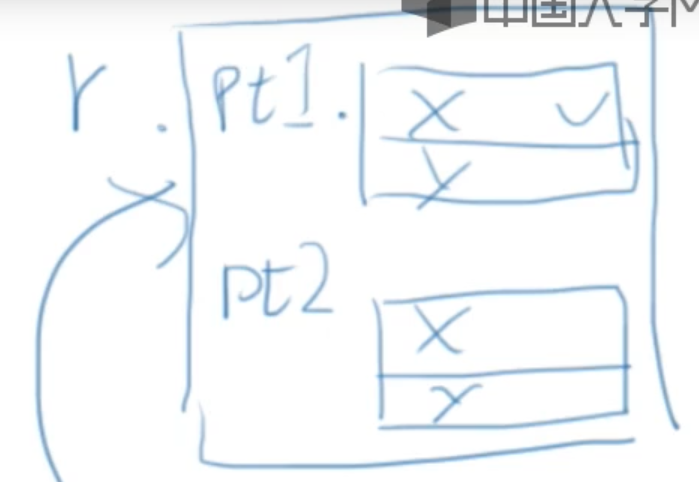 中国大学
r . pt1 . x
y
pt2
x
y